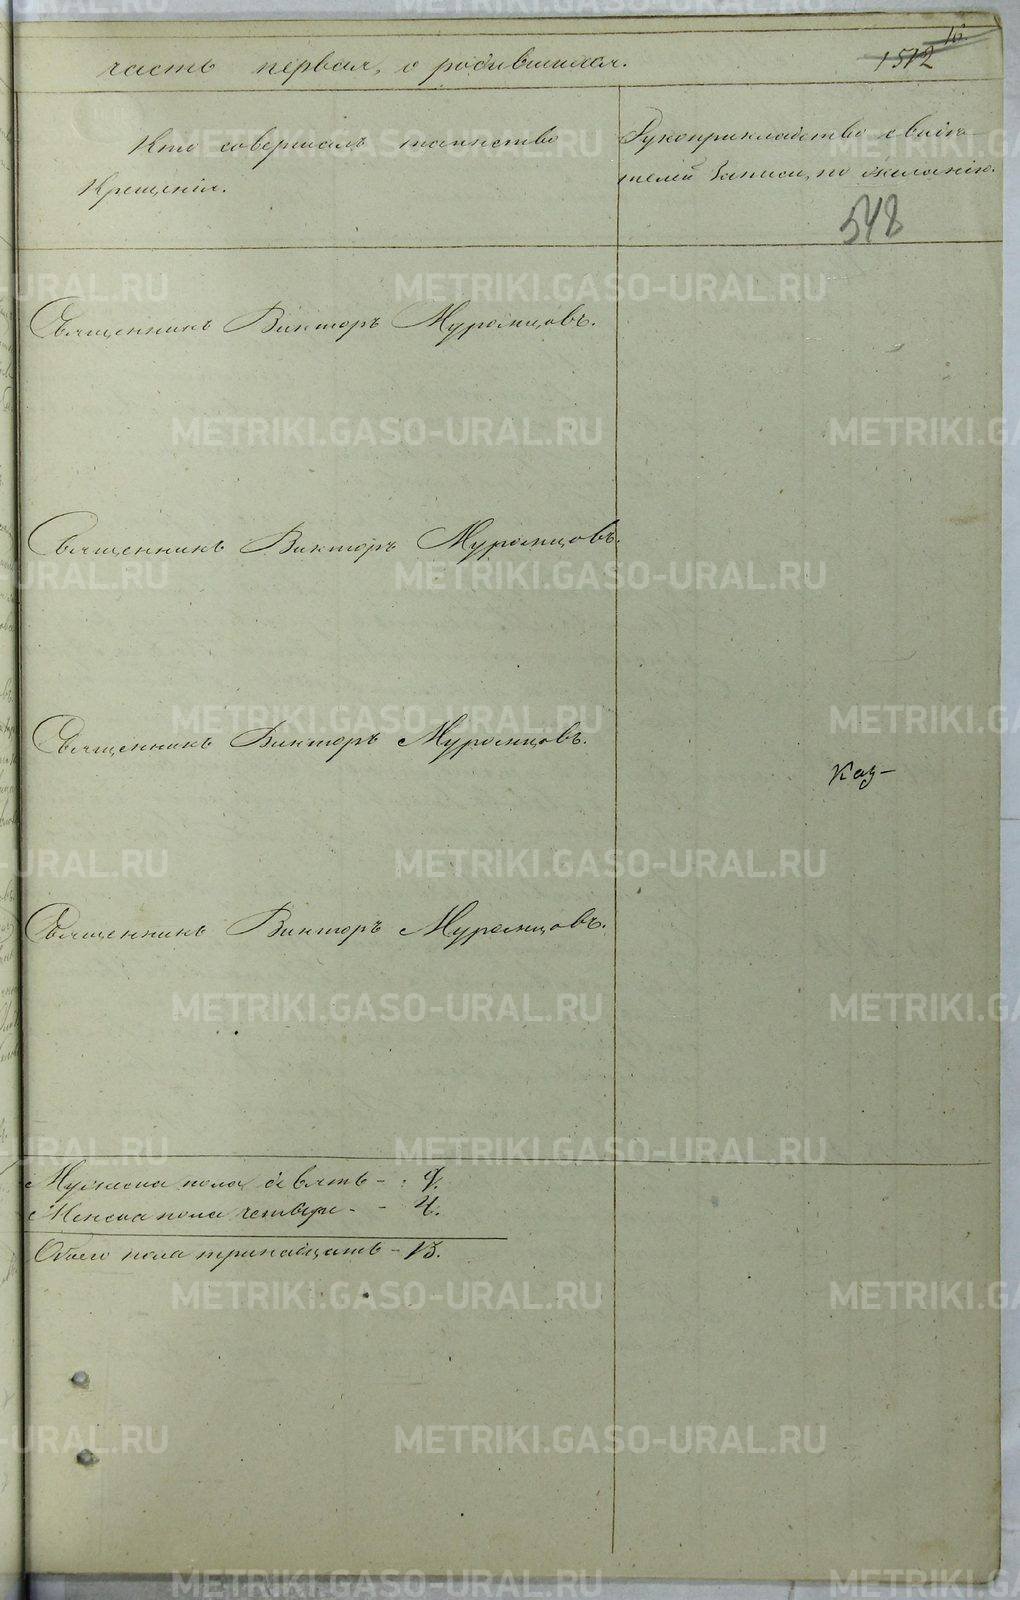 часть первая, о родившихся.
16.
1512
Кто совершалъ таинство
Крещенія.
Рукоприкладство свидѣ-
телей записи, по желанію.
548
Священникъ Викторъ Муромцовъ.
Священникъ Викторъ Муромцовъ.
Священникъ Викторъ Муромцовъ.
Каз-
Священникъ Викторъ Муромцовъ.
Мужеска пола девять - 9.
Женска пола четверо - - 4.
Обоего пола тринадцать - 13.
METRIKI.GASO-URAL.RU